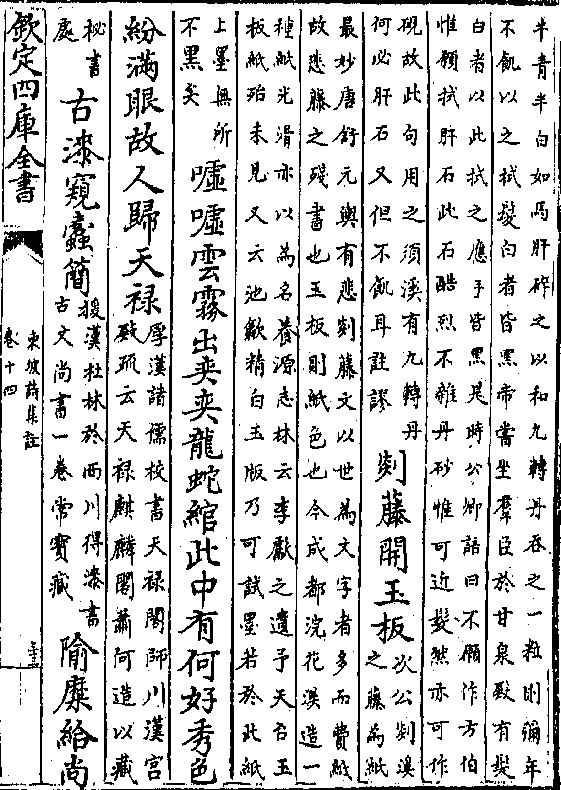 半青半白如馬肝碎之以和九轉丹吞之一粒則彌年
不飢以之拭髮白者皆黑帝嘗坐羣臣於甘泉殿有髮
白者以此拭之應手皆黑是時公卿語曰不願作方伯
惟願拭肝石此石酷烈不雜丹砂惟可近髮然亦可作
硯故此句用之須溪有九轉丹
何必肝石又但不飢耳註謬
剡藤開玉板
次公剡溪
之藤為紙
最妙唐舒元輿有悲剡藤文以世為文字者多而費紙
故悲藤之殘書也玉板則紙色也今成都浣花溪造一
種紙光滑亦以為名養源志林云李獻之遺予天台玉
板紙殆未見又云池歙精白玉版乃可試墨若於此紙
上墨無所
不黑矣
噓噓雲霧出奕奕龍蛇綰此中有何好秀色
紛滿眼故人歸天禄
厚漢諸儒校書天禄閣師川漢宫
殿疏云天禄麒麟閣蕭何造以藏
秘書
處
古漆窺蠹簡
援漢杜林於西川得漆書
古文尚書一卷常寶藏
隃麋給尚
欽定四庫全書
東坡詩集註
卷十四